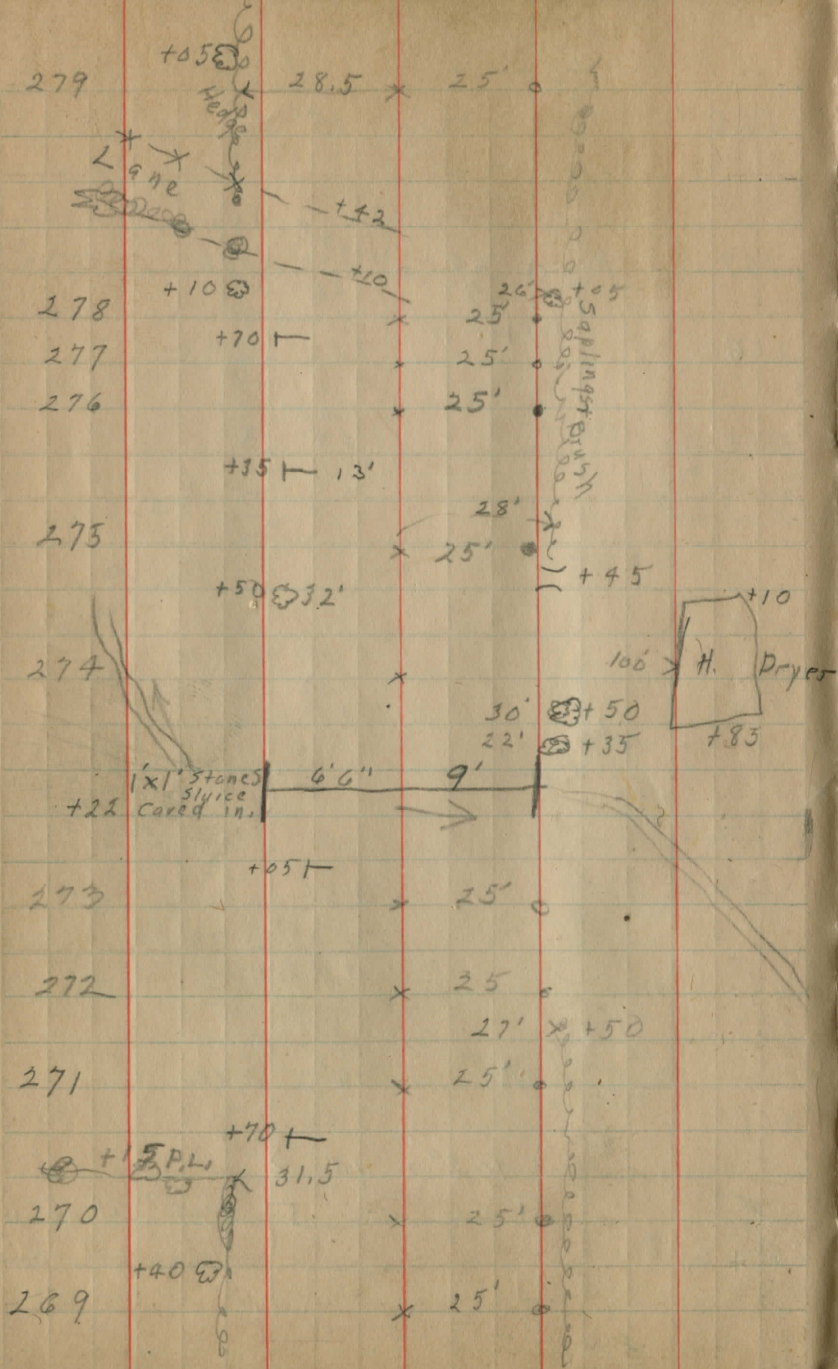 +05
279 28.5 25'
Hedge
Lane
+42
+10
+10 26' +05
278 25'
+70
277 25'
276 25'
Saplings & Brush
+35 13'
28'
275 25'
+45
+50 32'
+10
274 100' H. Dryer
30' +50
22' +35
+83
1'x1' Stones 6'6" 9'
Slyice
+22 Caved in.
+05
273 25'
272 25
27' +50
271 25'
+70
+15 P.L. 31.5
270 25'
+40
269 25'